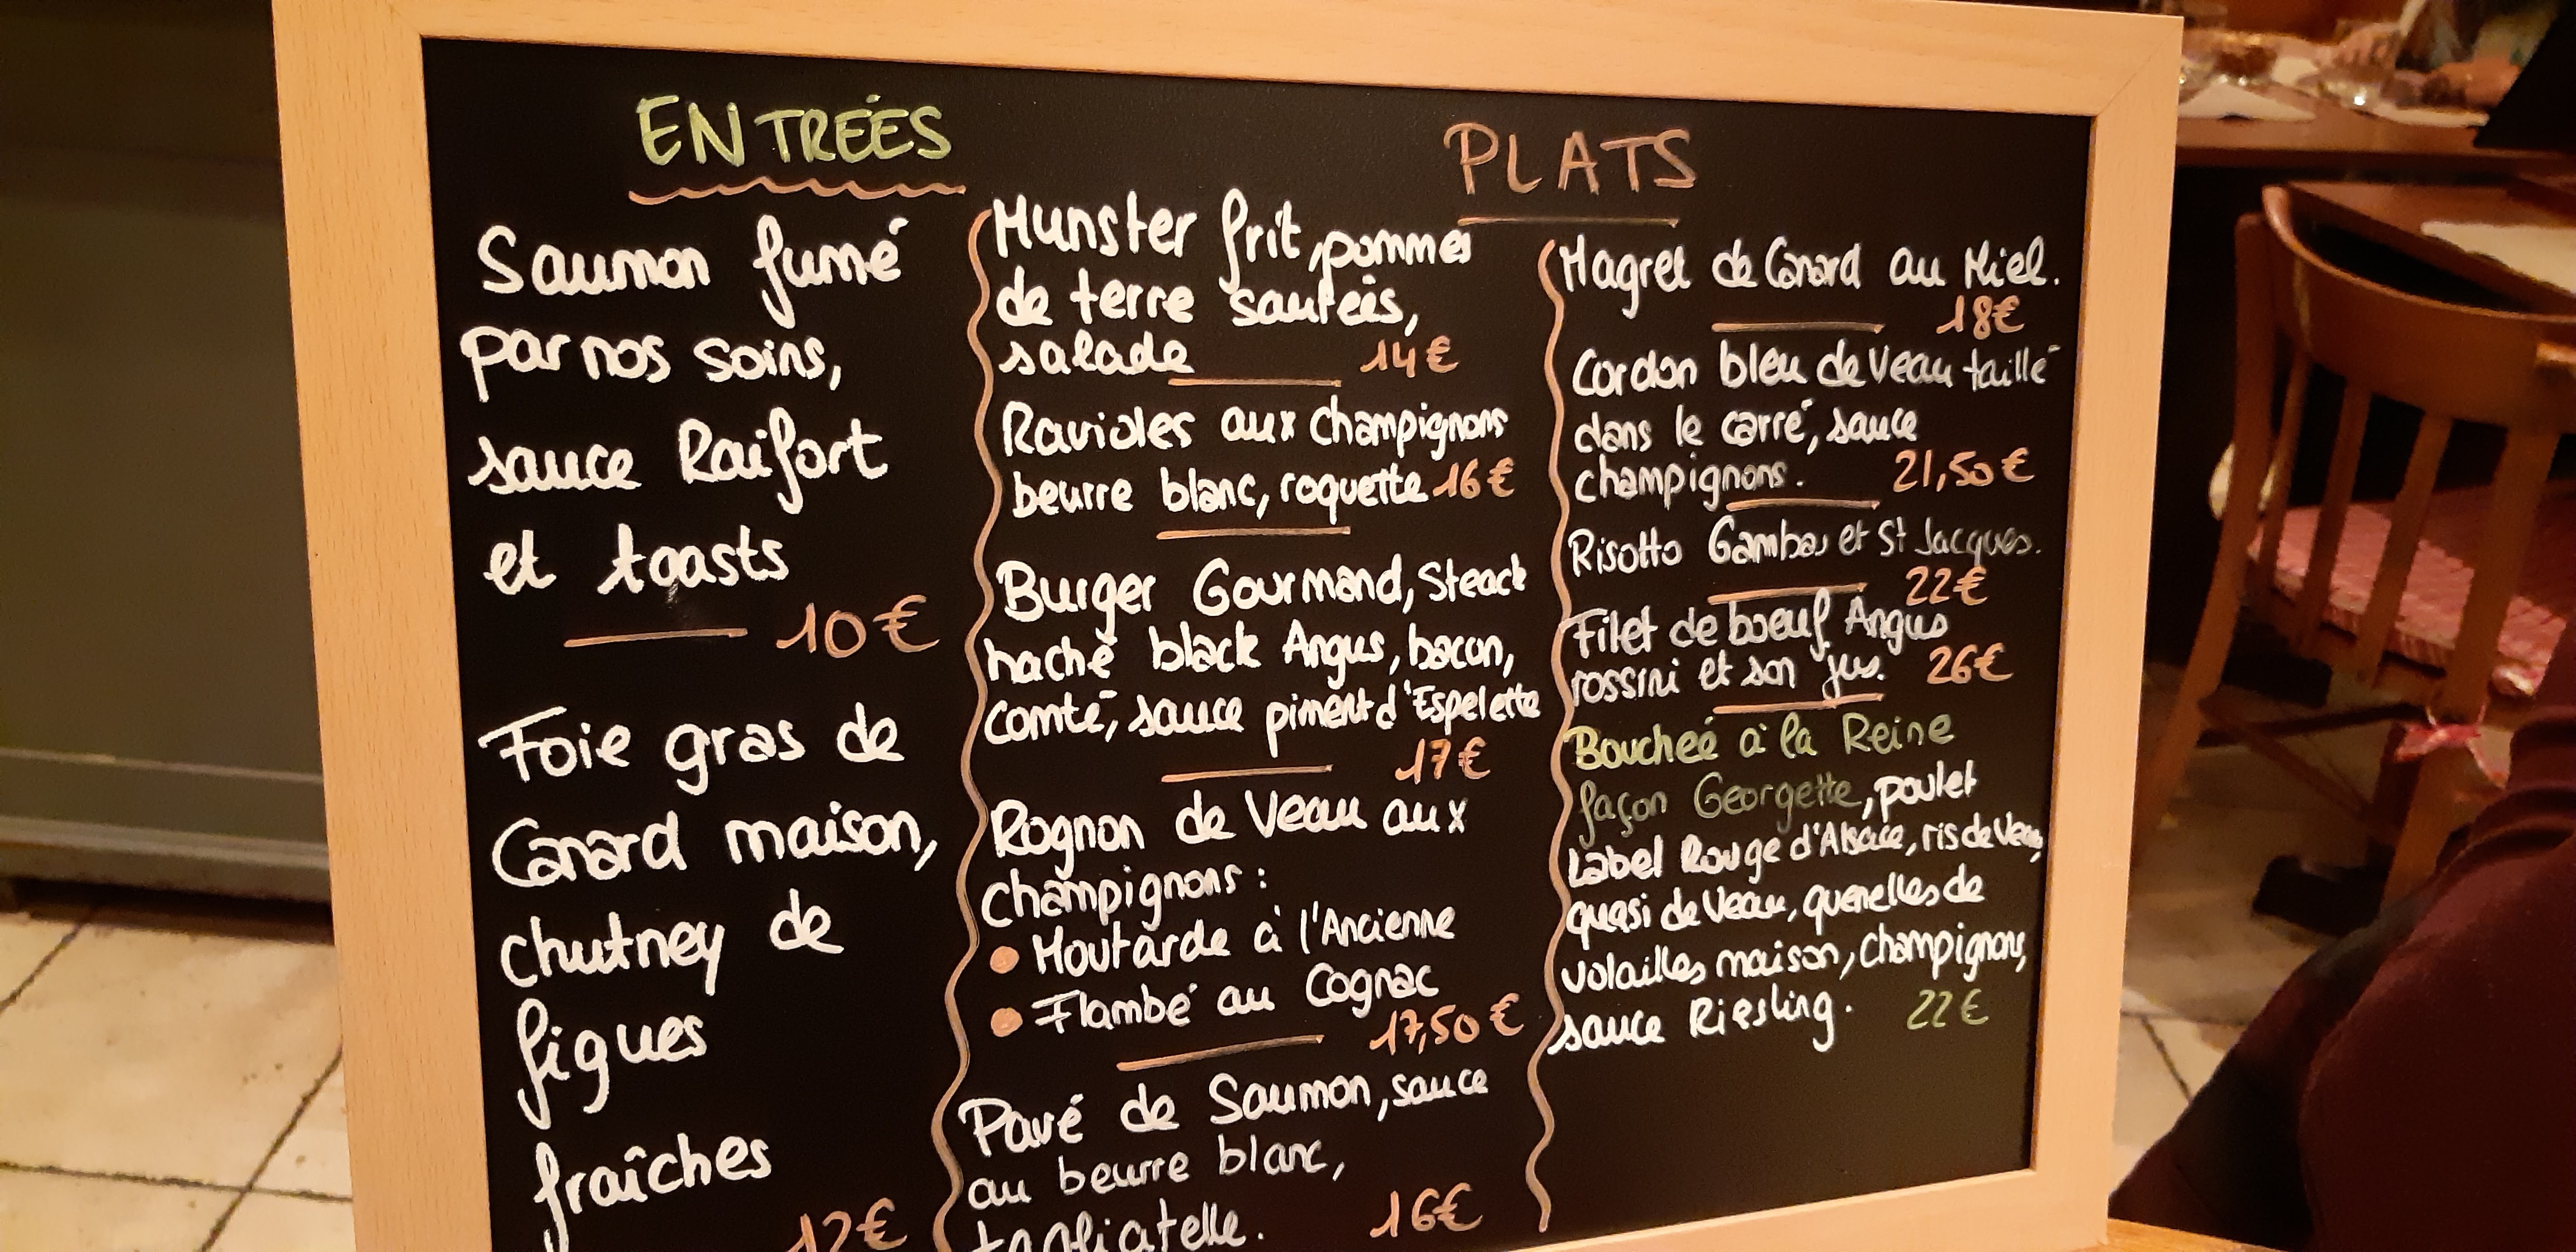 ENTRÉES
Saumon fumé
par nos soins,
sauce Raifort
et toasts
10€
Foie gras de
Canard maison,
chutney de
figues
fraîches
12€
PLATS
Munster frit, pommes
de terre sautées,
salade 14€
Ravioles aux champignons
beurre blanc, roquette 16€
Burger Gourmand, Steack
haché black Angus, bacon,
comté, sauce piment d'Espelette
17€
Rognon de Veau aux
champignons :
• Moutarde à l'Ancienne
• Flambé au Cognac
17,50€
Pavé de Saumon, sauce
au beurre blanc,
tagliatelle. 16€
Magret de Canard au Miel.
18€
Cordon bleu de Veau taillé
dans le carré, sauce
champignons. 21,50€
Risotto Gambas et St Jacques.
22€
Filet de boeuf Angus
rossini et son jus. 26€
Boucheé à la Reine
façon Georgette, poulet
Label Rouge d'Alsace, ris de Veau,
quasi de Veau, quenelles de
volailles maison, champignons,
sauce Riesling. 22€